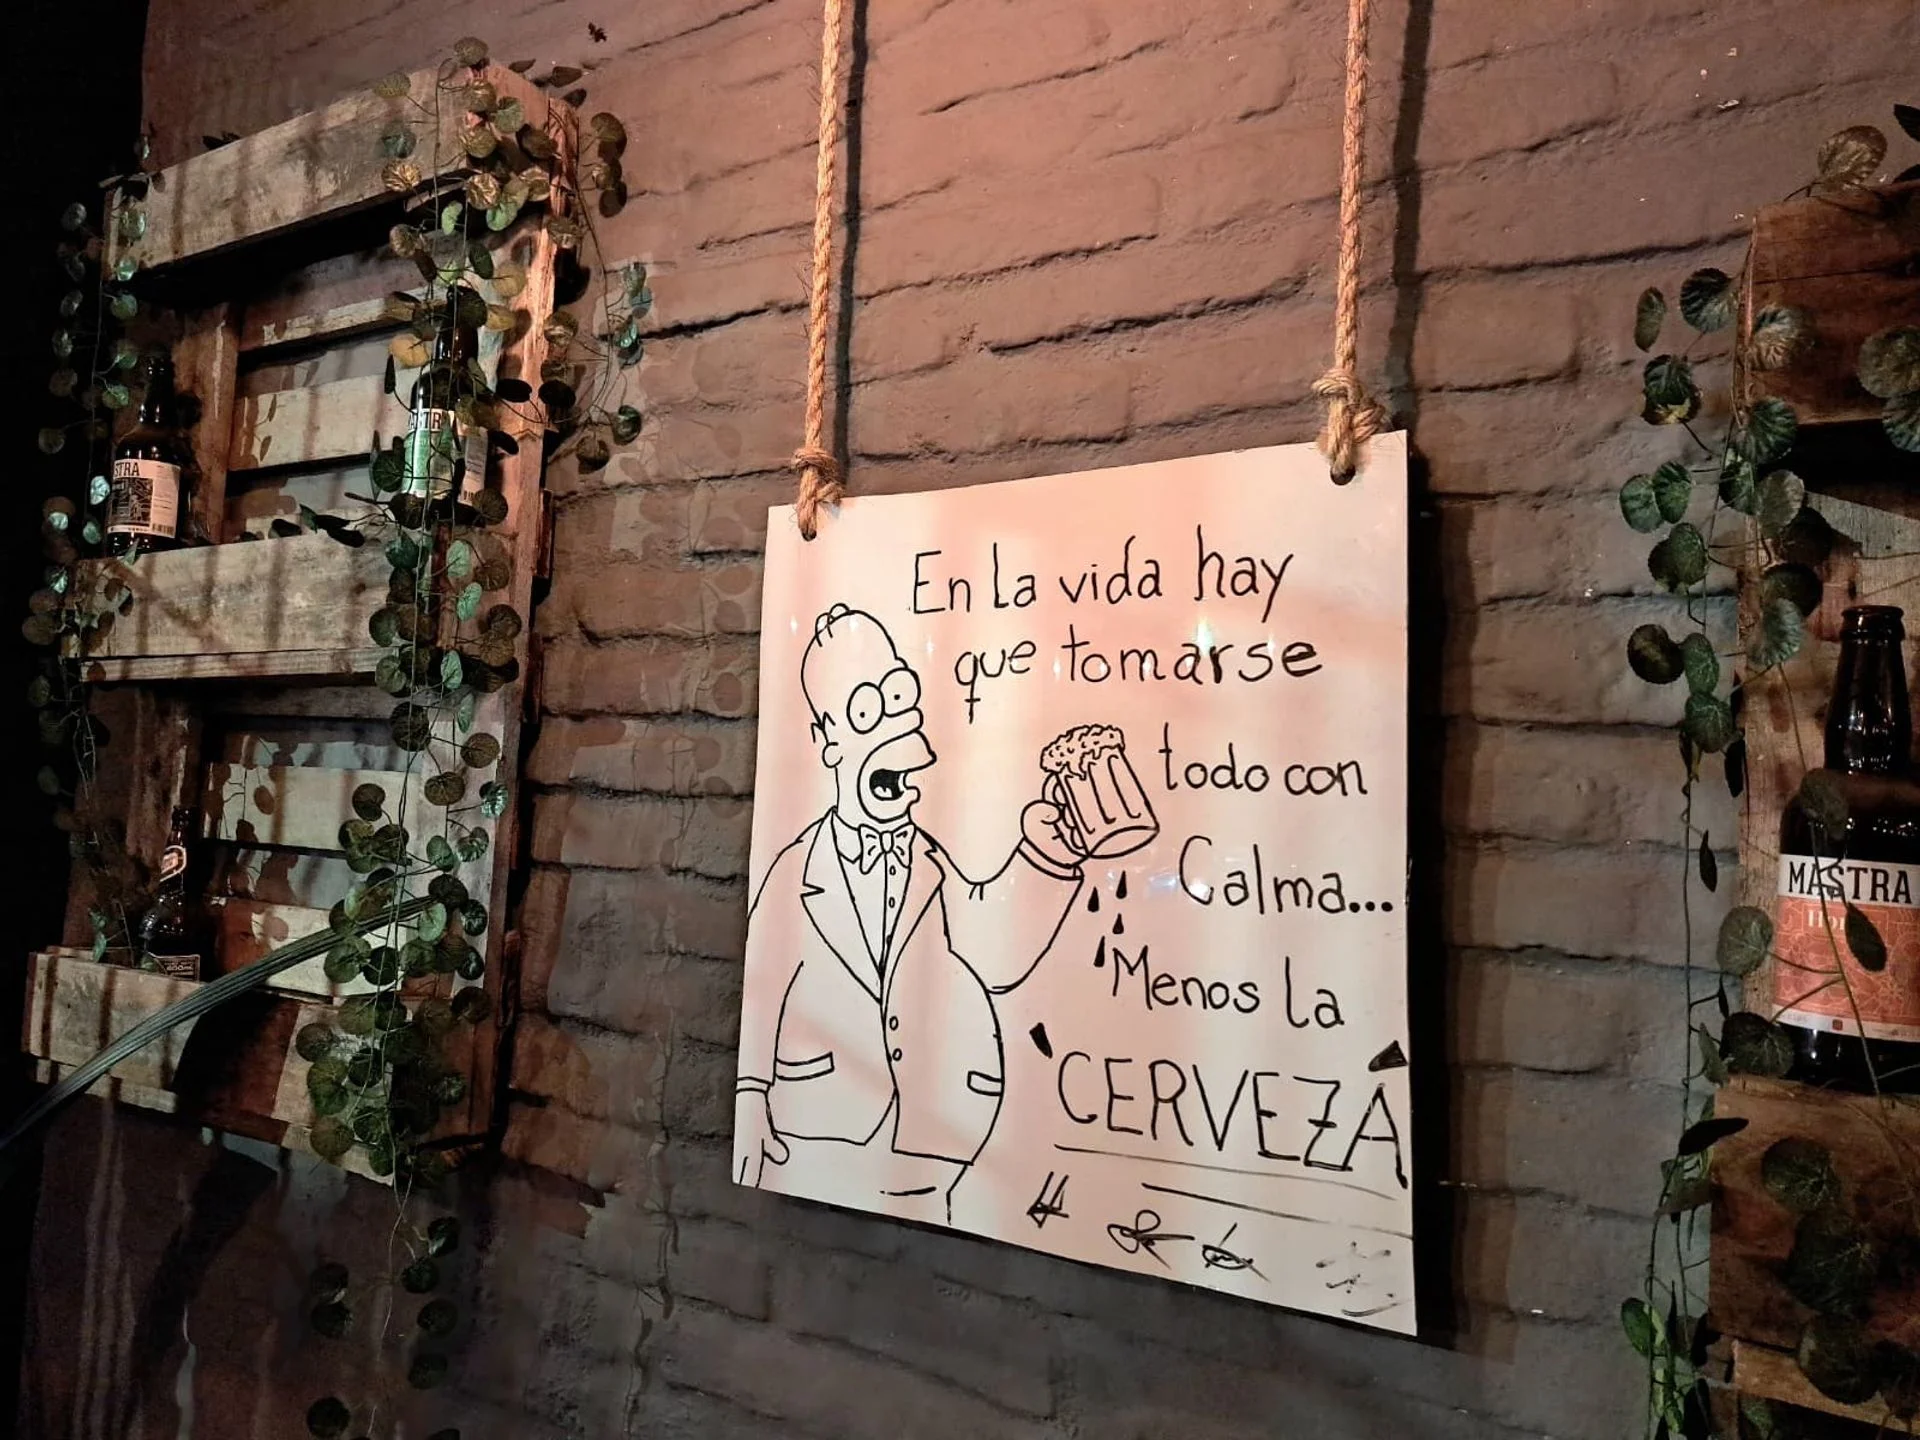 En la vida hay
que tomarse
todo con
Calma...
Menos la
CERVEZA
STRA
MASTRA